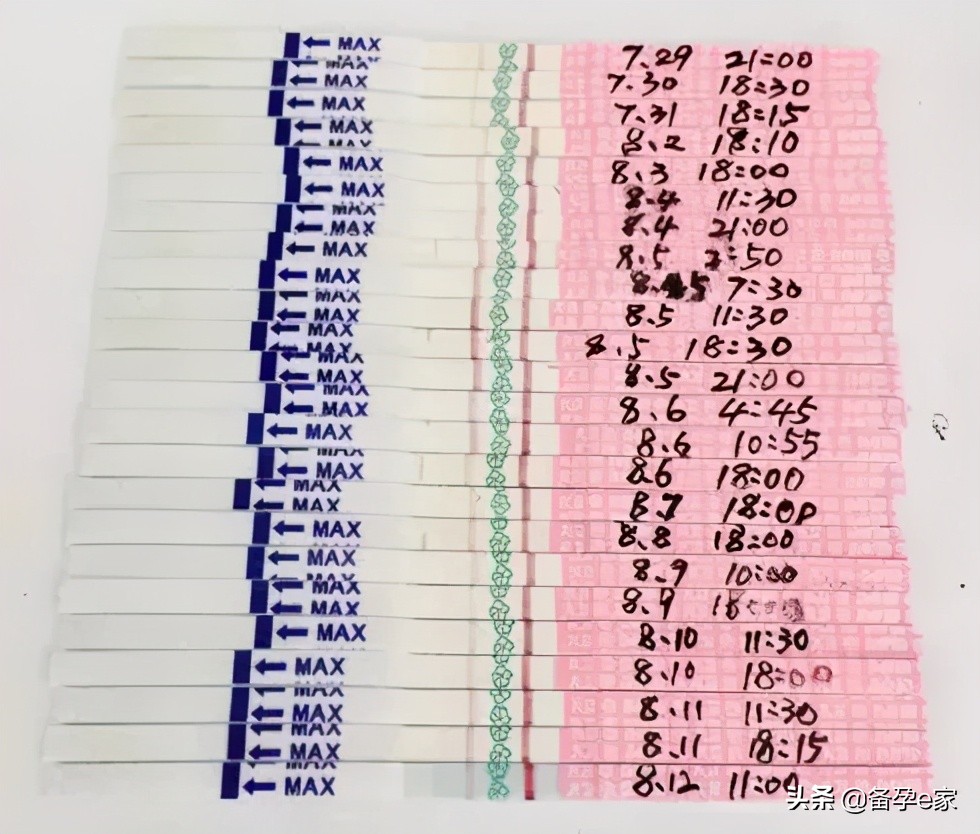 MAX 7.29 21:00
MAX
MAX 7.30 18:30
MAX 7.31 18:15
MAX 8.2 18:10
MAX
MAX 8.3 18:00
MAX 8.4 11:30
MAX
MAX 8.4 21:00
MAX 8.5 2:50
MAX 8.5 7:30
MAX
MAX 8.5 11:30
MAX
MAX 8.5 18:30
MAX
MAX 8.5 21:00
MAX
MAX 8.6 4:45
MAX 8.6 10:55
MAX
MAX 8.6 18:00
MAX
MAX 8.7 18:00
MAX 8.8 18:00
MAX 8.9 10:00
MAX
MAX 8.9
MAX 8.10 11:30
MAX 8.10 18:00
MAX
MAX 8.11 11:30
MAX
MAX 8.11 18:15
MAX
MAX 8.12 11:00
头条 @备孕e家